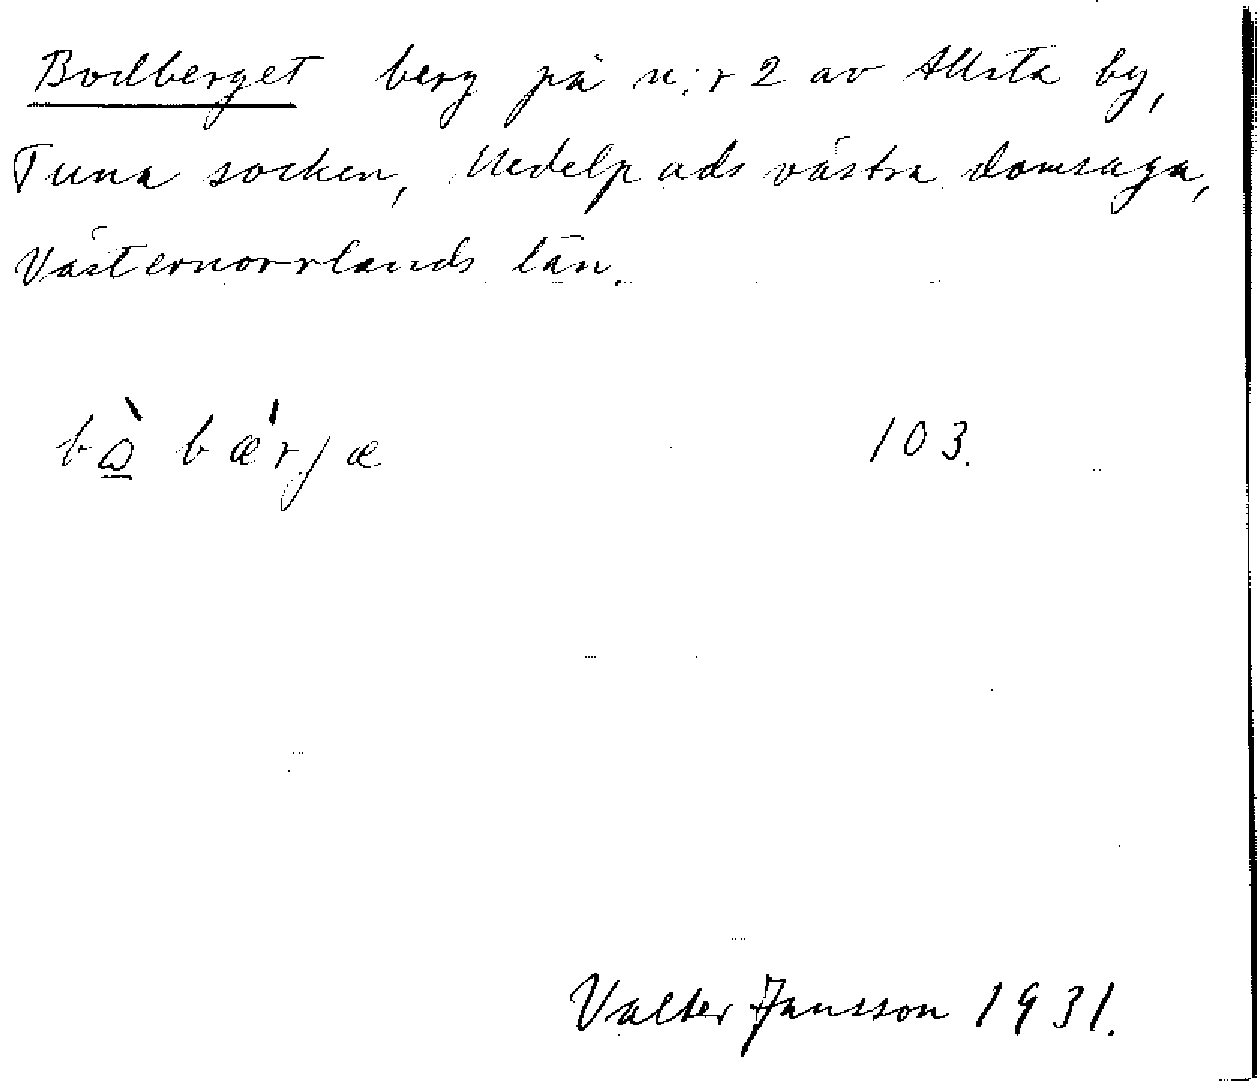 Bodberget berg på n:r 2 av Allsta by,
Tuna socken, Medelpads västra domsaga,
Västernorrlands län.
bɷ̀ bæ̍rjæ 103.
Valter Jansson 1931.